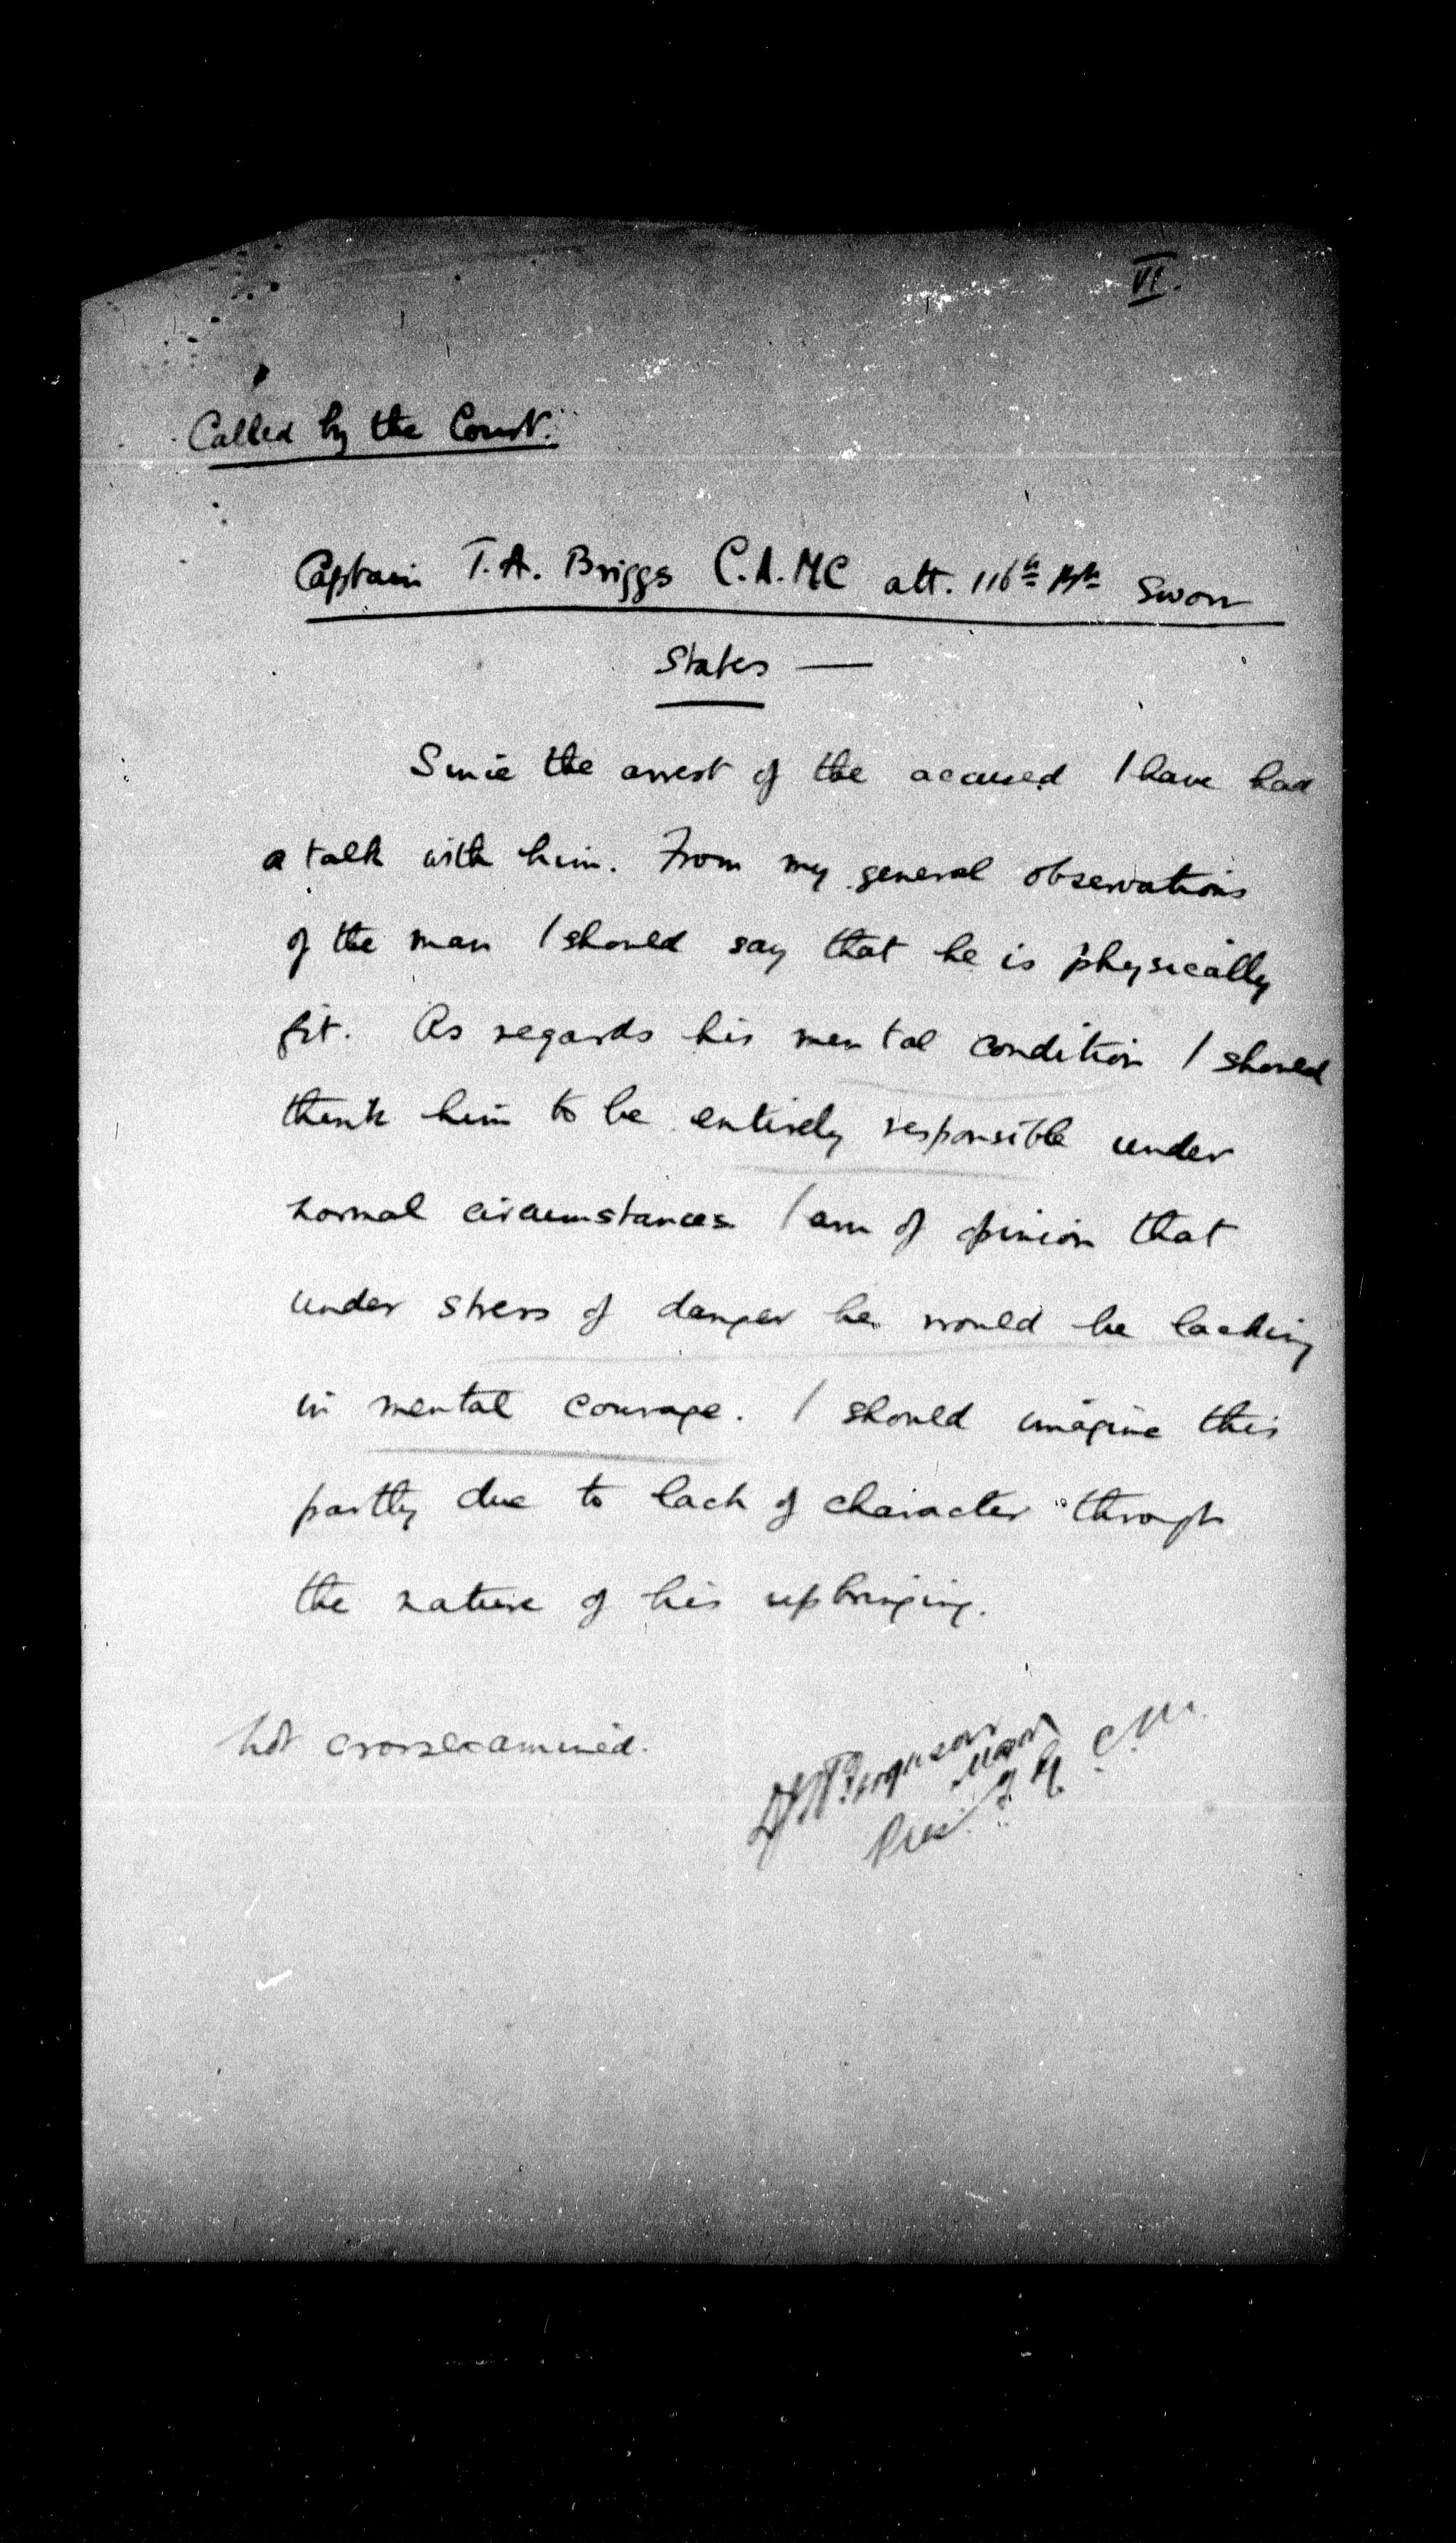 VI.
Called by the Court.
Captain T.A. Briggs C.A.M.C att. 116th Bn Sworn
States —
Since the arrest of the accused I have had
a talk with him. From my general observations
of the man I should say that he is physically
fit. As regards his mental condition I should
think him to be entirely responsible under
normal circumstances I am of opinion that
under stress of danger he would be lacking
in mental courage. I should imagine this
partly due to lack of character through
the nature of his upbringing.
Not crossexamined.
Ferguson
Major
Pres. F.G.C.M.